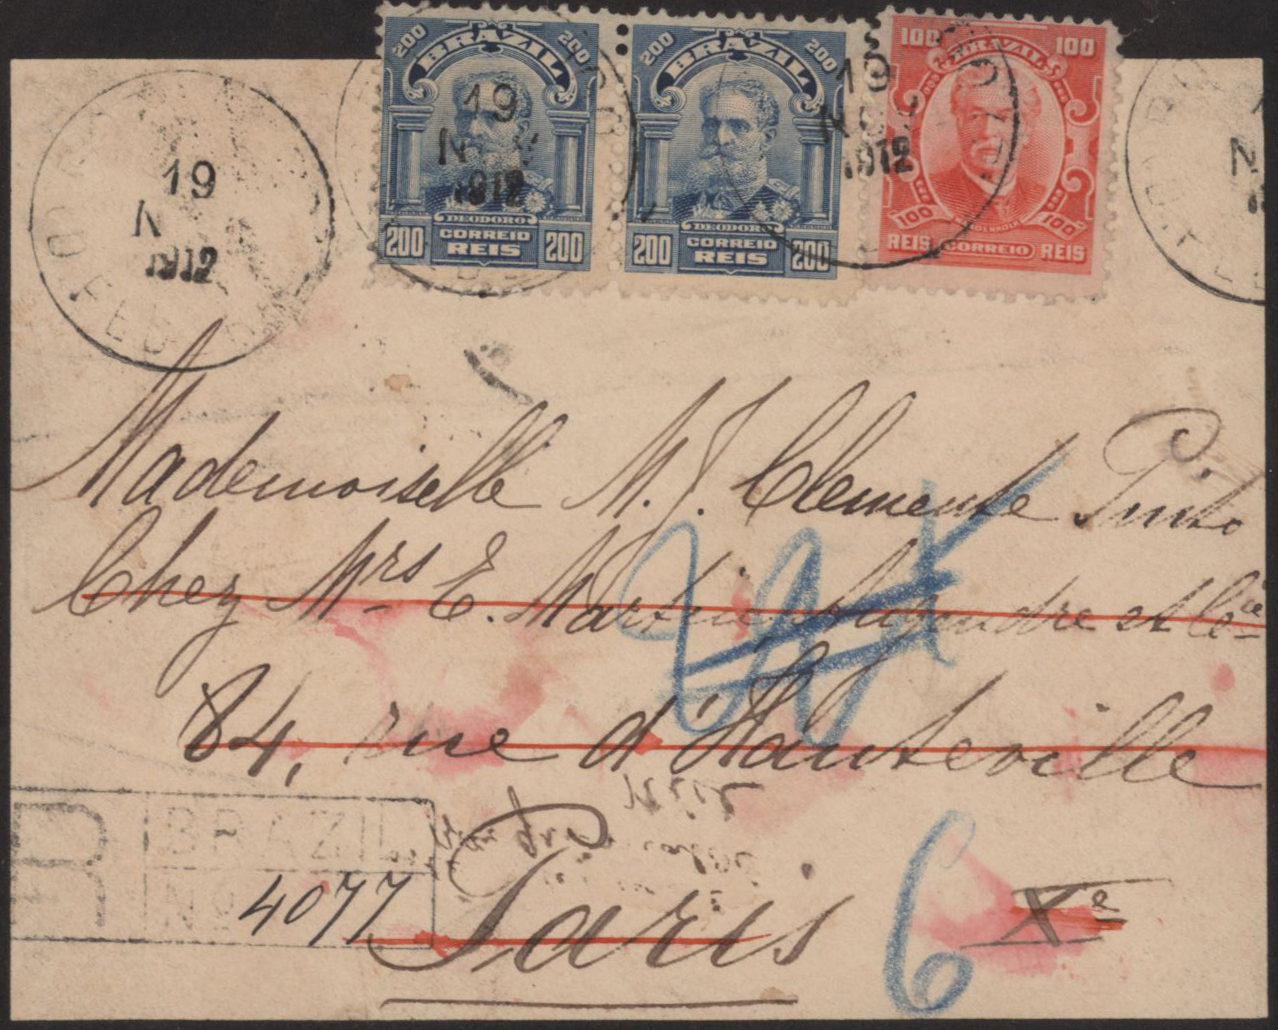 200 BRAZIL 200
DEODORO
CORREIO
200 REIS 200
200 BRAZIL 200
DEODORO
CORREIO
200 REIS 200
100 BRAZIL 100
100 100
REIS CORREIO REIS
19
N
1912
19
N
1912
19
NOV
1912
Mademoiselle M. J. Clemente Pinto
Chez Mrs E. Martin et Cie
84, rue d'Hauteville
Paris Xe
R BRAZIL
No 4077
6